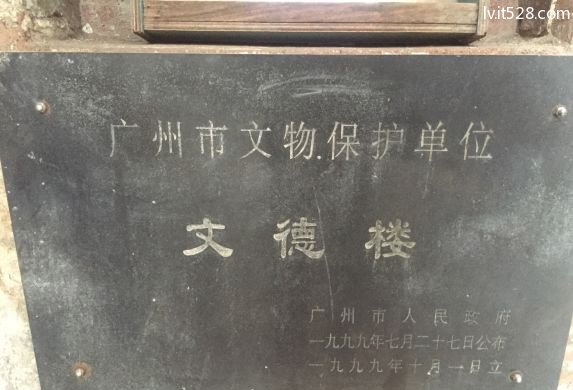 lvit528.com
广州市文物保护单位
文德楼
广州市人民政府
一九九九年七月二十七日公布
一九九九年十月一日立